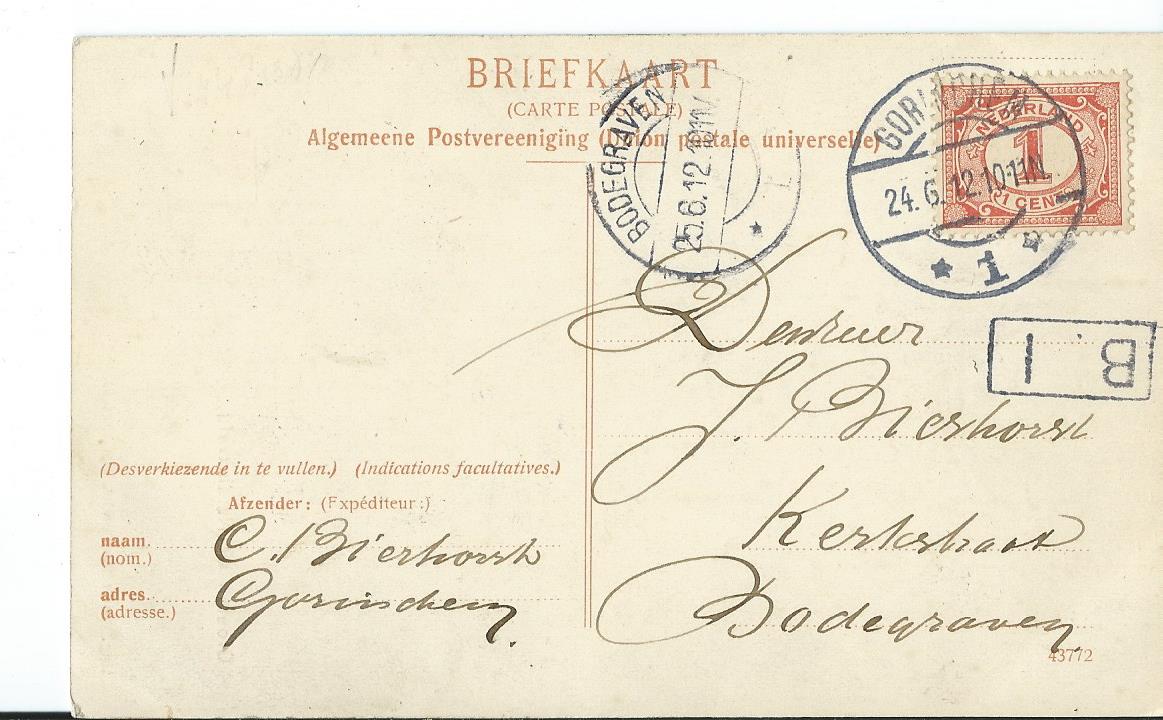 BRIEFKAART
(CARTE POSTALE)
Algemeene Postvereeniging (Union postale universelle)
BODEGRAVEN
25.6.12.
GORINCHEM
24.6.12.10-11N.
1
NEDERLAND
1
1 CENT
B I
Den Heer
J. Bierhorst
Kerkstraat
Bodegraven
(Desverkiezende in te vullen.) (Indications facultatives.)
Afzender: (Expéditeur:)
naam. C. Bierhorst
(nom.)
adres. Gorinchem.
(adresse.)
43772